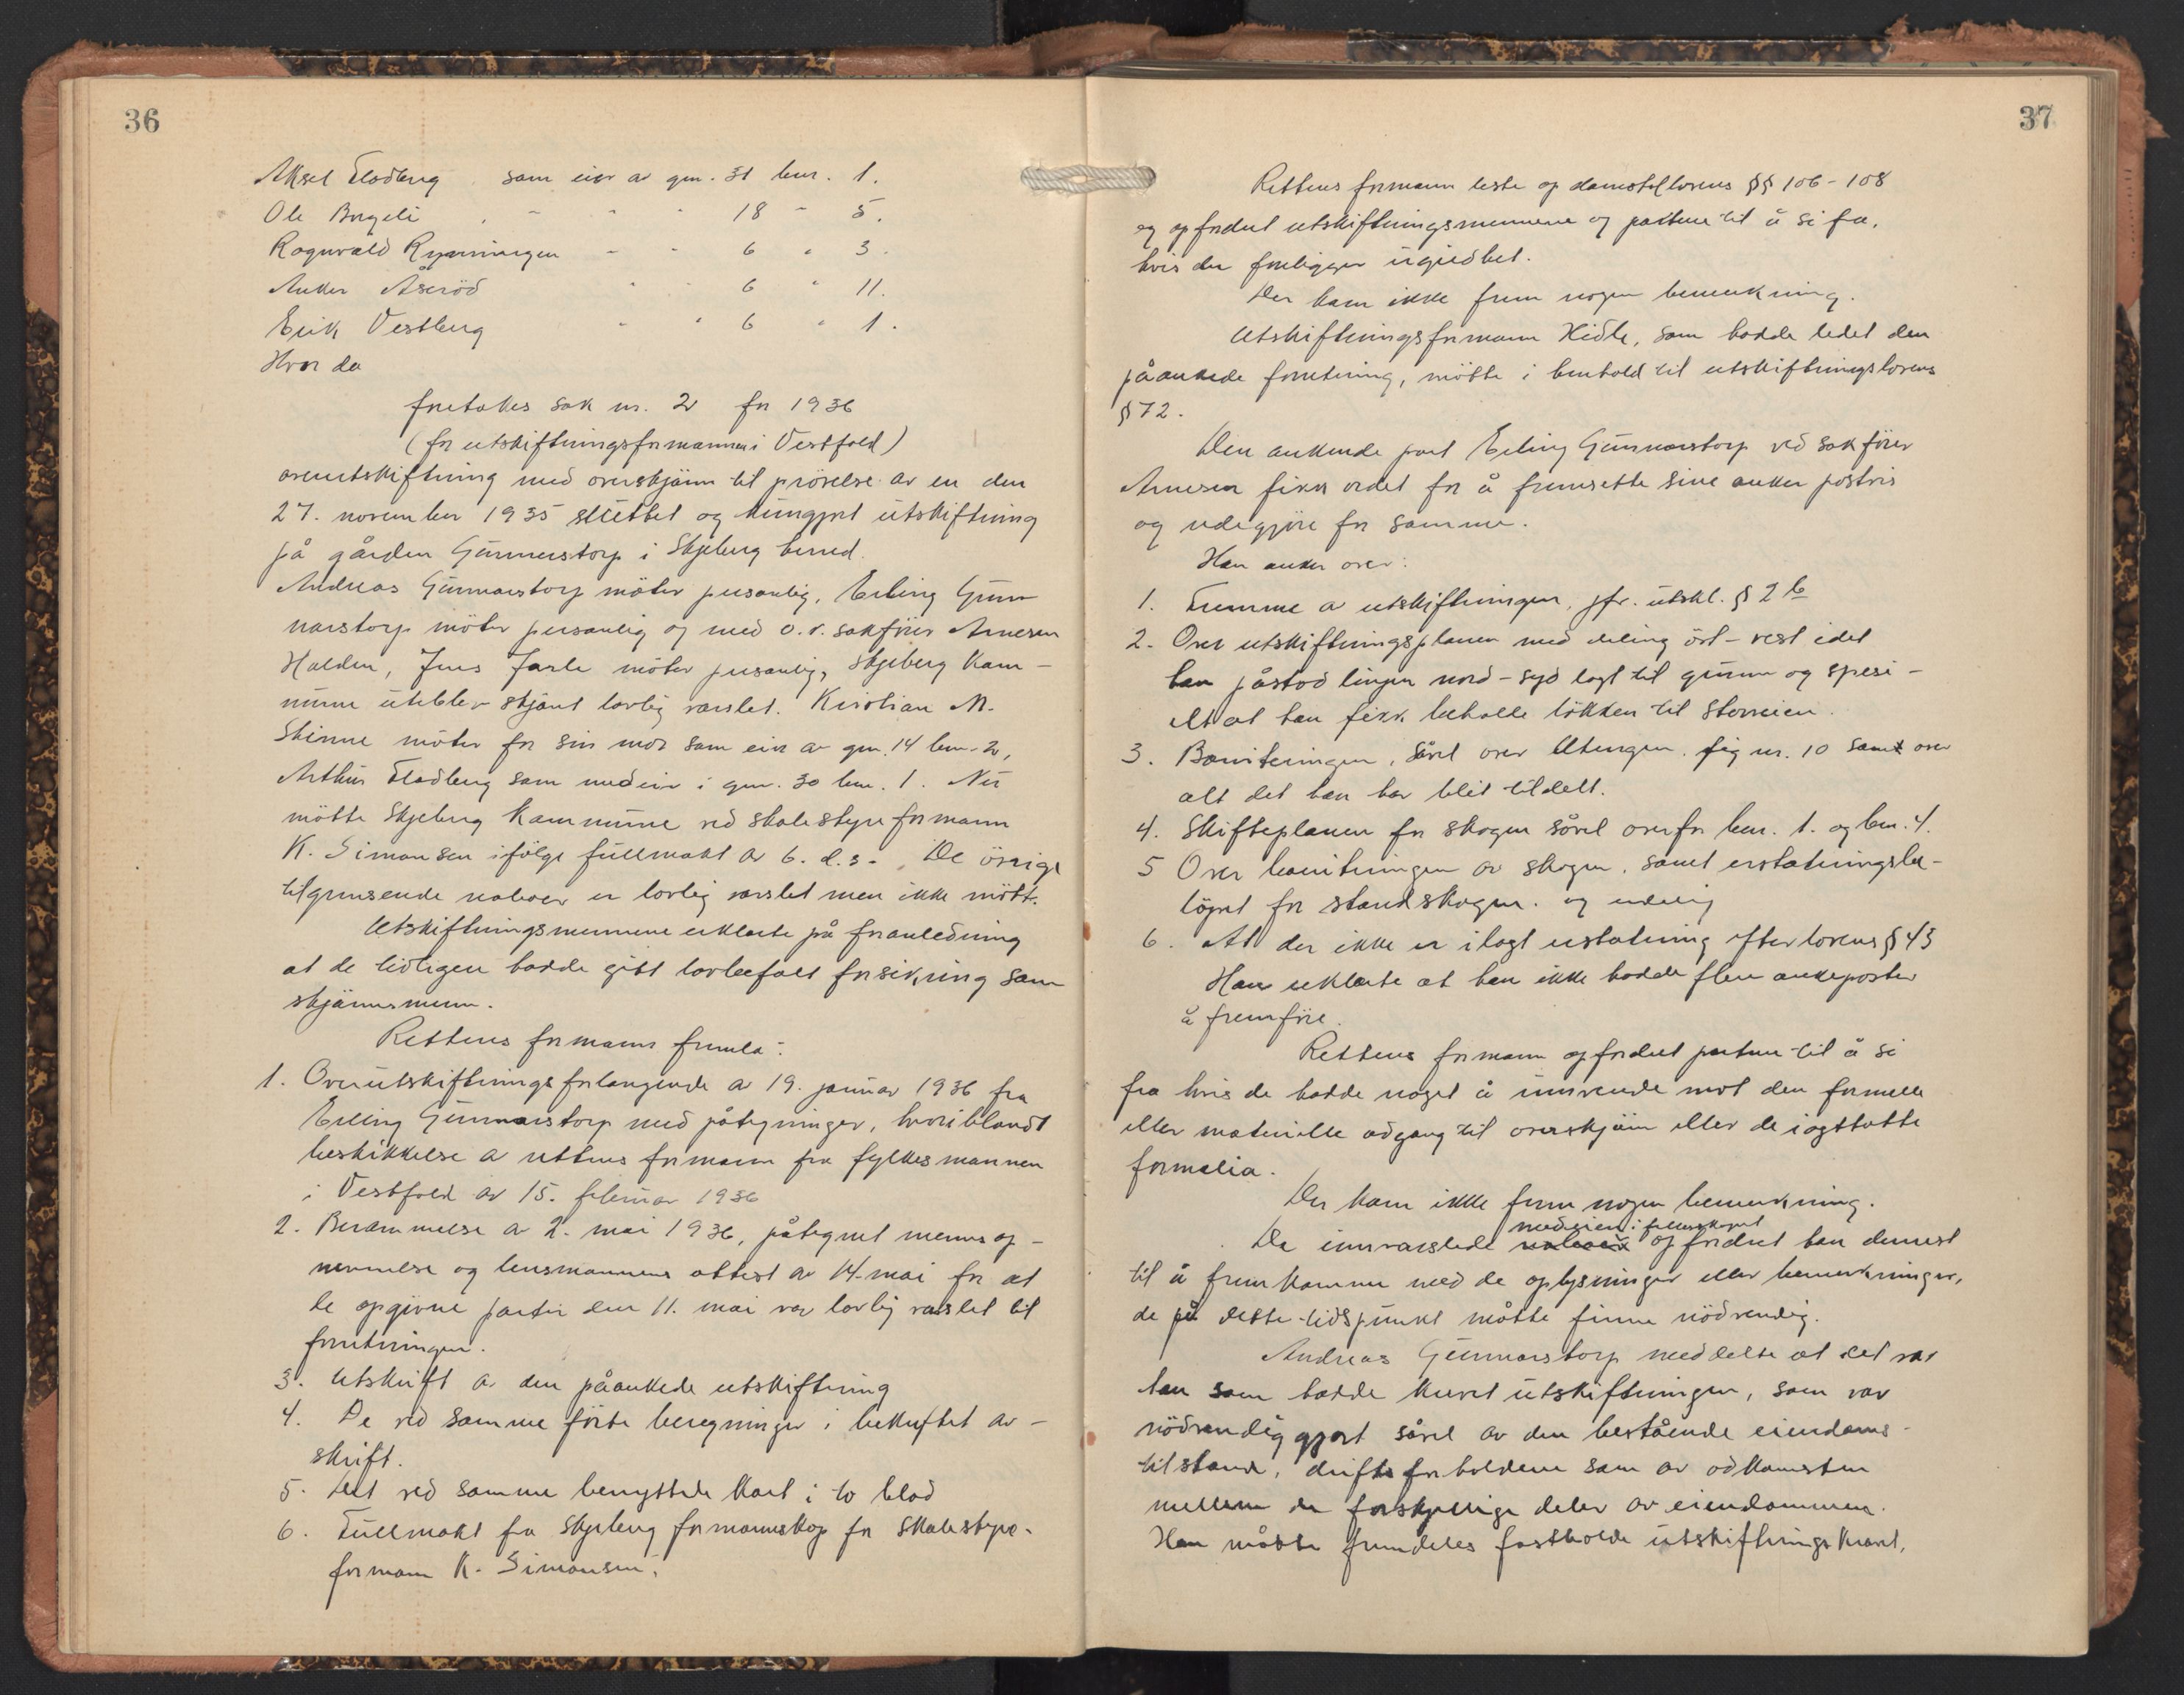 36
Aksel Flodberg som eier av gnr. 31 bnr. 1.
Ole Borgeli - - - 18 - 5.
Rognvald Rynningen - - 6 " 3.
Anker Åserød " " 6 " 11.
Erik Vestberg " " 6 " 1.
Hvor da
foretokes sak nr. 2 for 1936
(for utskiftningsformannen i Vestfold)
overutskiftning med overskjønn til prövelse av en den
27. november 1935 sluttet og kunngjort utskiftning
på gården Gunnarstorp i Skjeberg herred.
Andreas Gunnarstorp möter personlig, Erling Gun-
narstorp möter personlig og med o.r. sakförer Arnesen
Halden, Jens Jarle möter personlig, Skjeberg kom-
mune uteblev skjönt lovlig varslet. Kristian M.
Skinne möter for sin mor som eier av gnr. 14 bnr. 2,
Arthur Flodberg som medeier i gnr. 30 bnr. 1. Nu
mötte Skjeberg kommune ved skolestyreformann
K. Simonsen ifölge fullmakt av 6. d.s. De övrige
tilgrensende naboer er lovlig varslet men ikke mött.
Utskiftningsmennene erklærte på foranledning
at de tidligere hadde gitt lovbefalt forsikring som
skjönnsmenn.
Rettens formann fremla:
1. Overutskiftningsforlangende av 19. januar 1936 fra
Erling Gunnarstorp med påtegninger, hvoriblandt
beskikkelse av rettens formann fra fylkesmannen
i Vestfold av 15. februar 1936
2. Berammelse av 2. mai 1936, påtegnet mennsop-
nevnelse og lensmannens attest av 14. mai for at
de opgivne parter den 11. mai var lovlig varslet til
forretningen.
3. Utskrift av den påankede utskiftning
4. De ved samme förte beregninger i bekreftet av-
skrift.
5. Det ved samme benyttede kart i to blad
6. Fullmakt fra Skjeberg formannskap for skolestyre-
formann K. Simonsen.
37
Rettens formann leste op domstollovens §§ 106-108
og opfordret utskiftningsmennene og partene til å si fra,
hvis der foreligger ugildhet.
Der kom ikke frem nogen bemerkning.
Utskiftningsformann Hidle, som hadde ledet den
påankede forretning, mötte i henhold til utskiftningslovens
§ 72.
Den ankende part Erling Gunnarstorp ved sakförer
Arnesen fikk ordet for å fremsette sine anker postvis
og redegjöre for samme.
Han anker over:
1. Fremme av utskiftningen, jfr. utskl. § 2 b
2. Over utskiftningsplanen med deling öst-vest idet
han påstod linjen nord-syd lagt til grunn og spesi-
elt at han fikk beholde lökken til storveien.
3. Boniteringen, såvel over Utengen, fig nr. 10 samt over
alt det han har blit tildelt.
4. Skifteplanen for skogen såvel overfor bnr. 1. og bnr. 4.
5 Over boniteringen av skogen, samt erstatningsbe-
löpet for standskogen. og endelig
6. At der ikke er ilagt erstatning efter lovens § 43
Han erklærte at han ikke hadde flere ankeposter
å fremföre.
Rettens formann opfordret partene til å si
fra hvis de hadde noget å innvende mot den formelle
eller materielle adgang til overskjönn eller de iagttatte
formalia.
Der kom ikke frem nogen bemerkning.
medeiere i fellesskapet
De innvarslede naboer opfordret han dernest
til å fremkomme med de oplysninger eller bemerkninger,
de på dette tidspunkt måtte finne nödvendig.
Andreas Gunnarstorp meddelte at det var
han som hadde krevet utskiftningen, som var
nödvendiggjort såvel av den bestående eiendoms-
tilstand, driftsforholdene som av adkomsten
mellem de forskjellige deler av eiendommen.
Han måtte fremdeles fastholde utskiftningskravet,